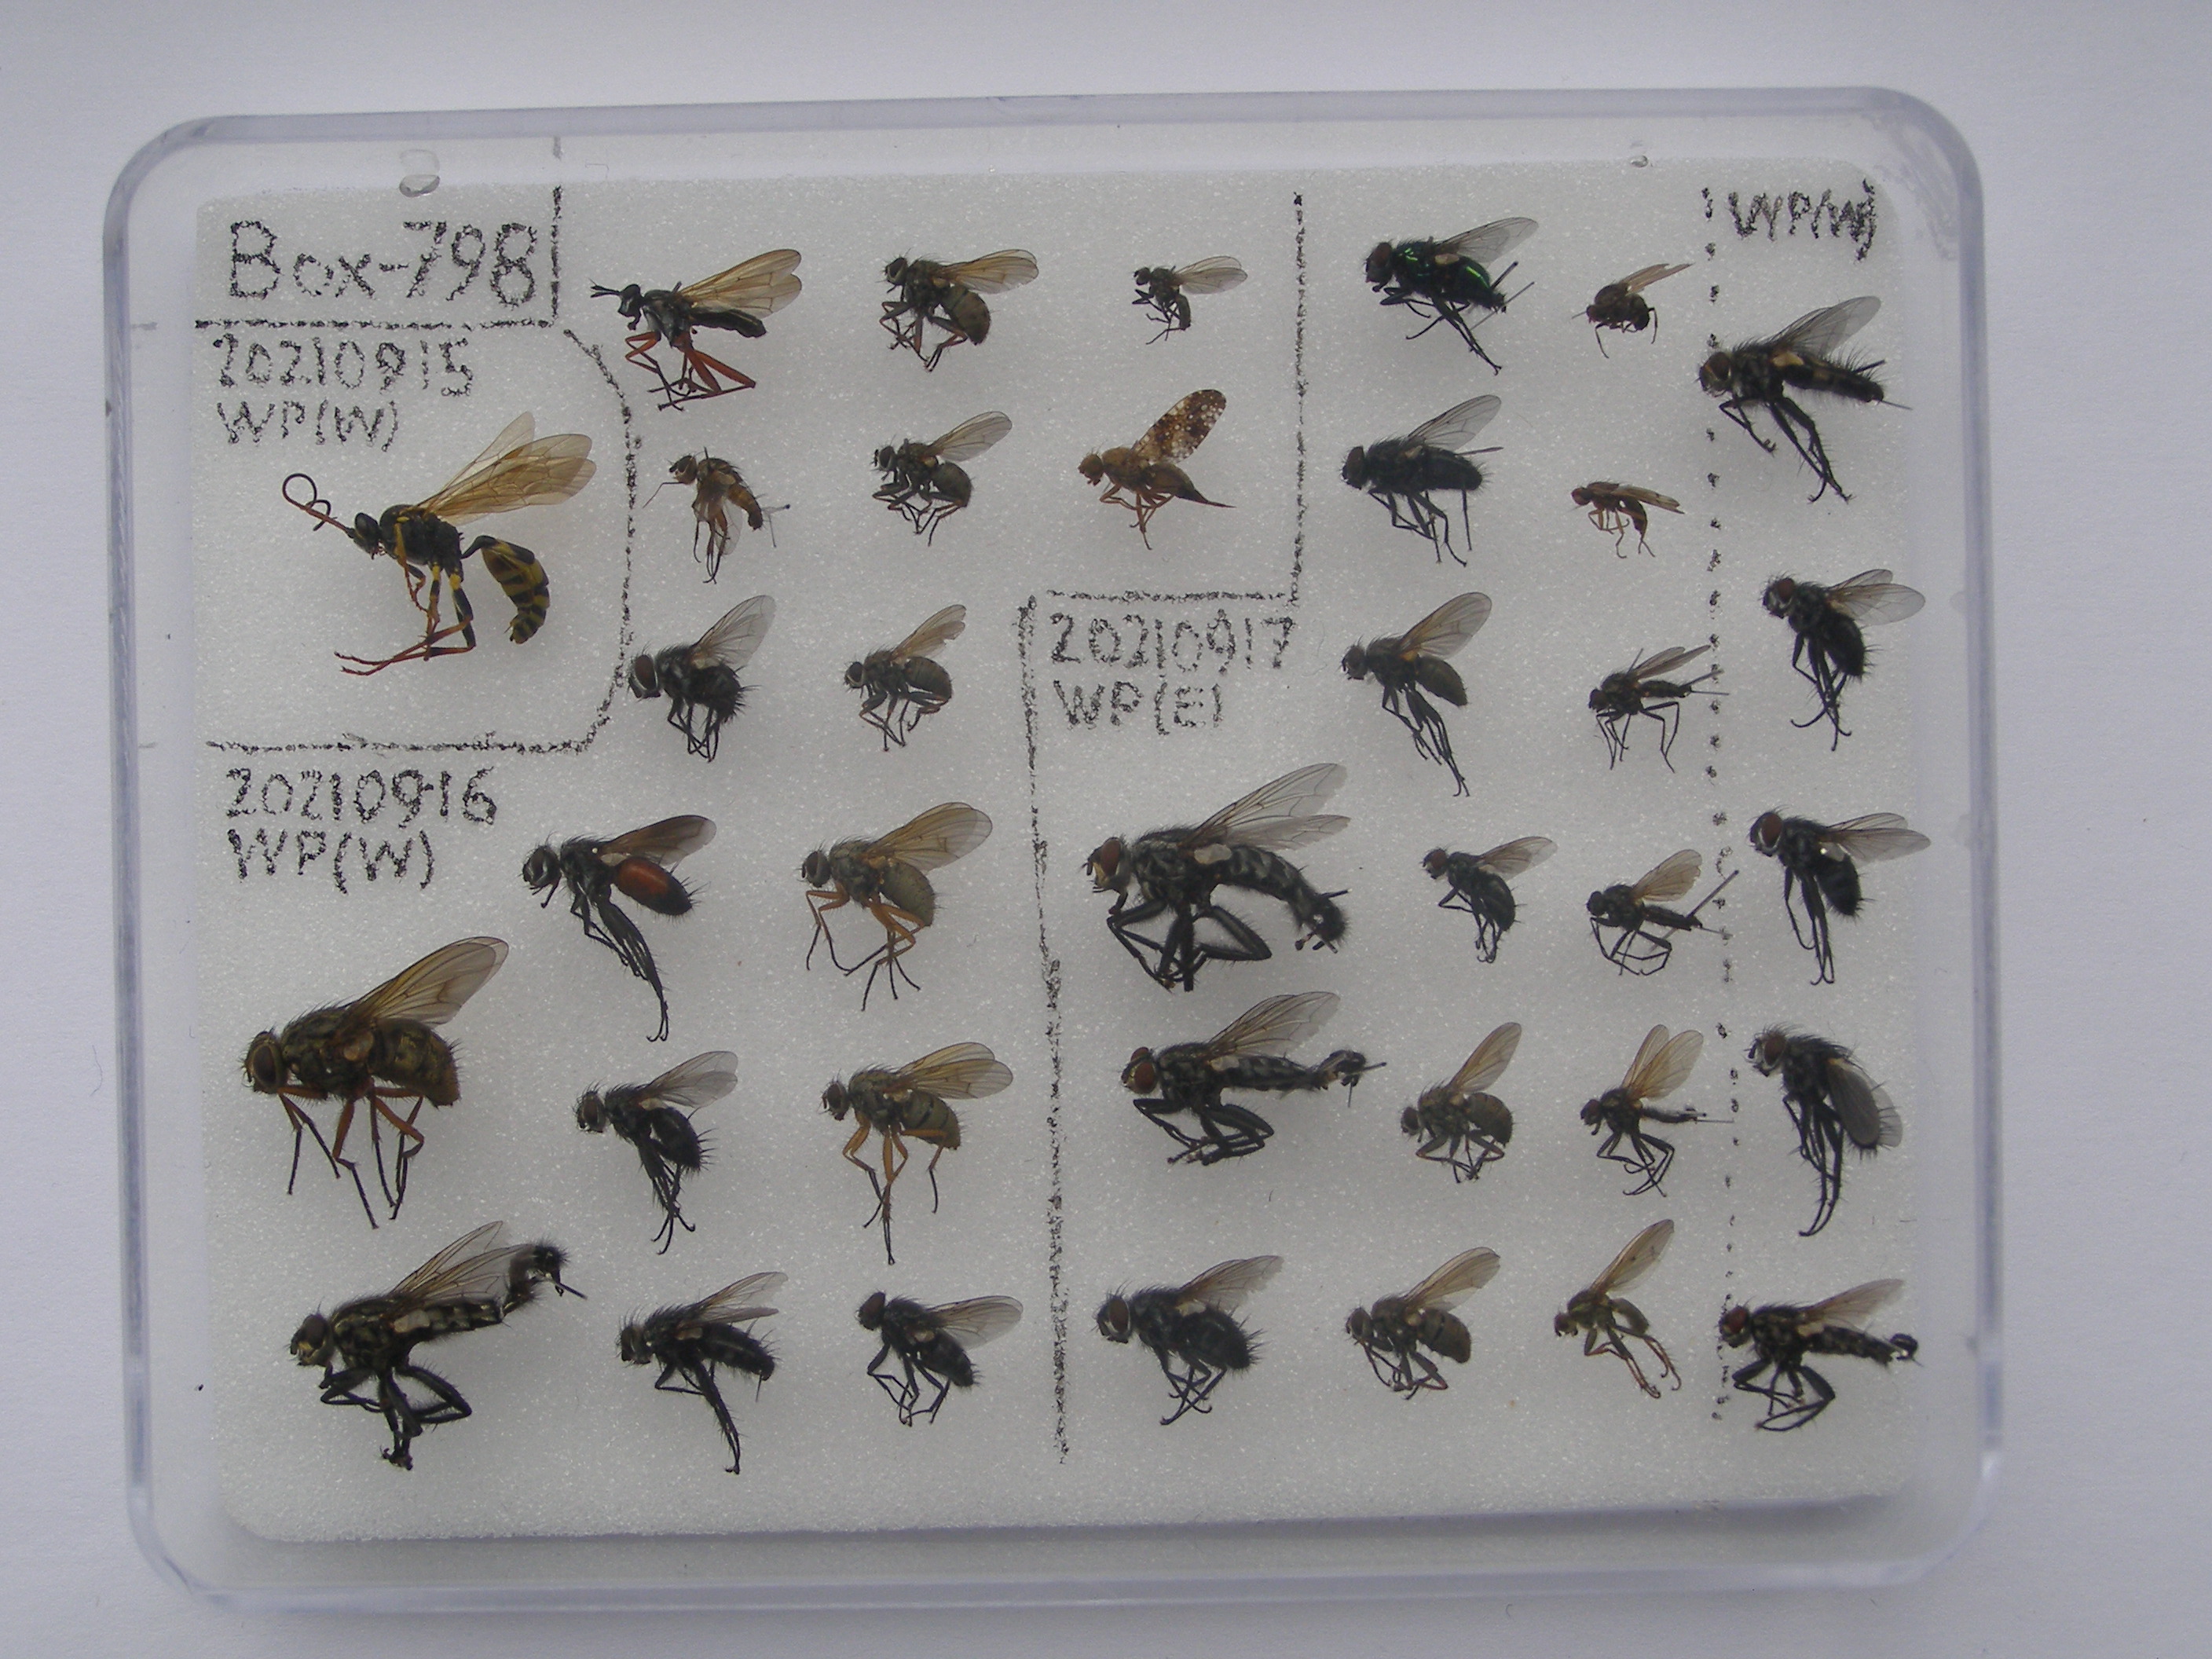 Box-798
20210915
WP(W)
20210916
WP(W)
20210917
WP(E)
WP(W)